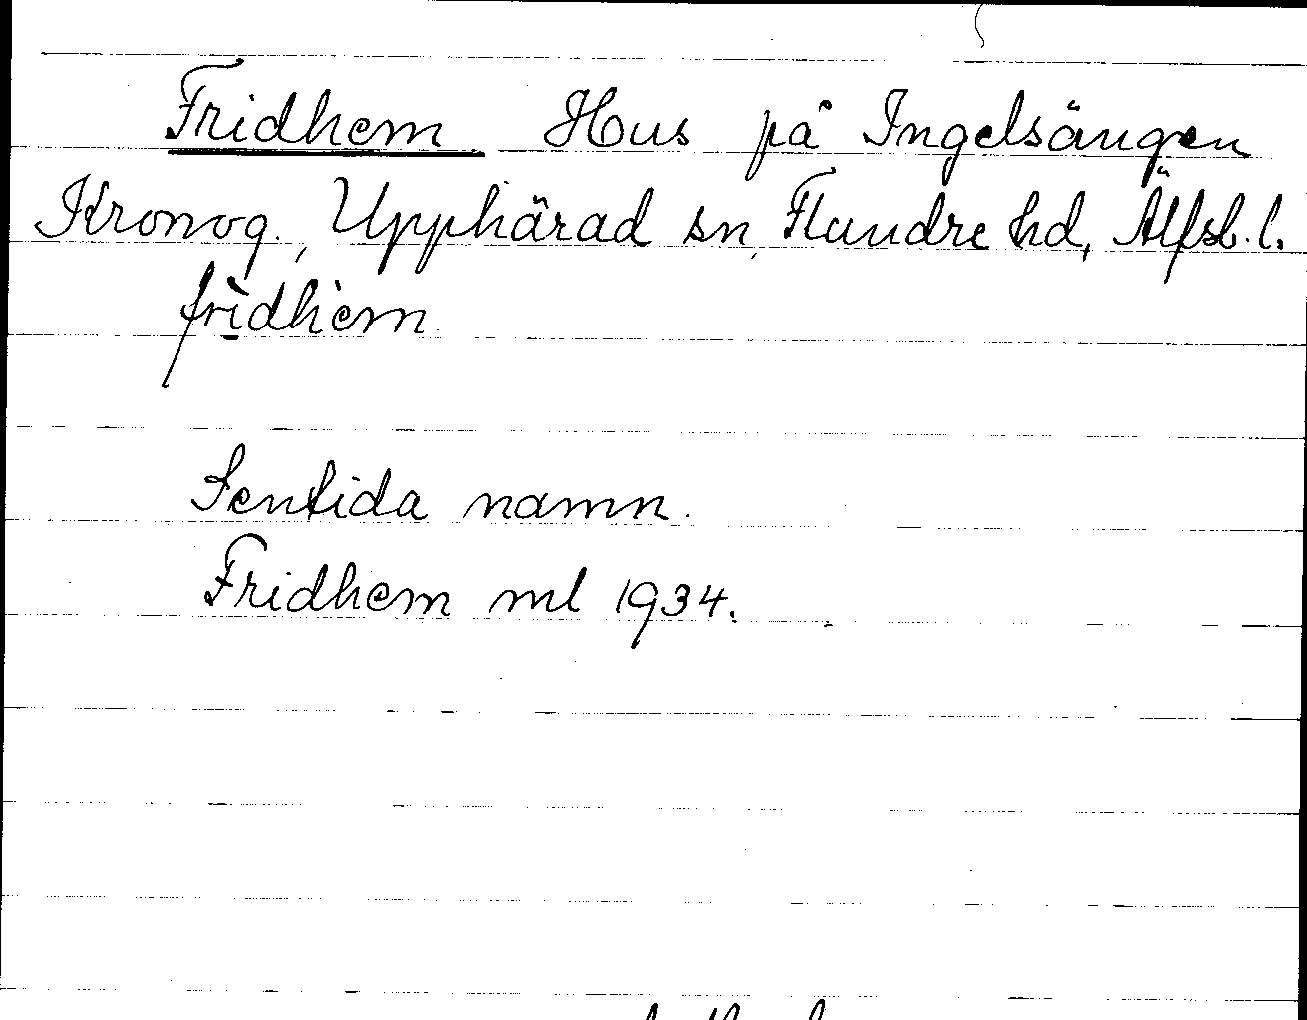 Fridhem Hus på Ingelsängen
Kronog., Upphärad sn, Flundre hd, Älfsb. l.
frì̱dhèm
Sentida namn.
Fridhem ml 1934.